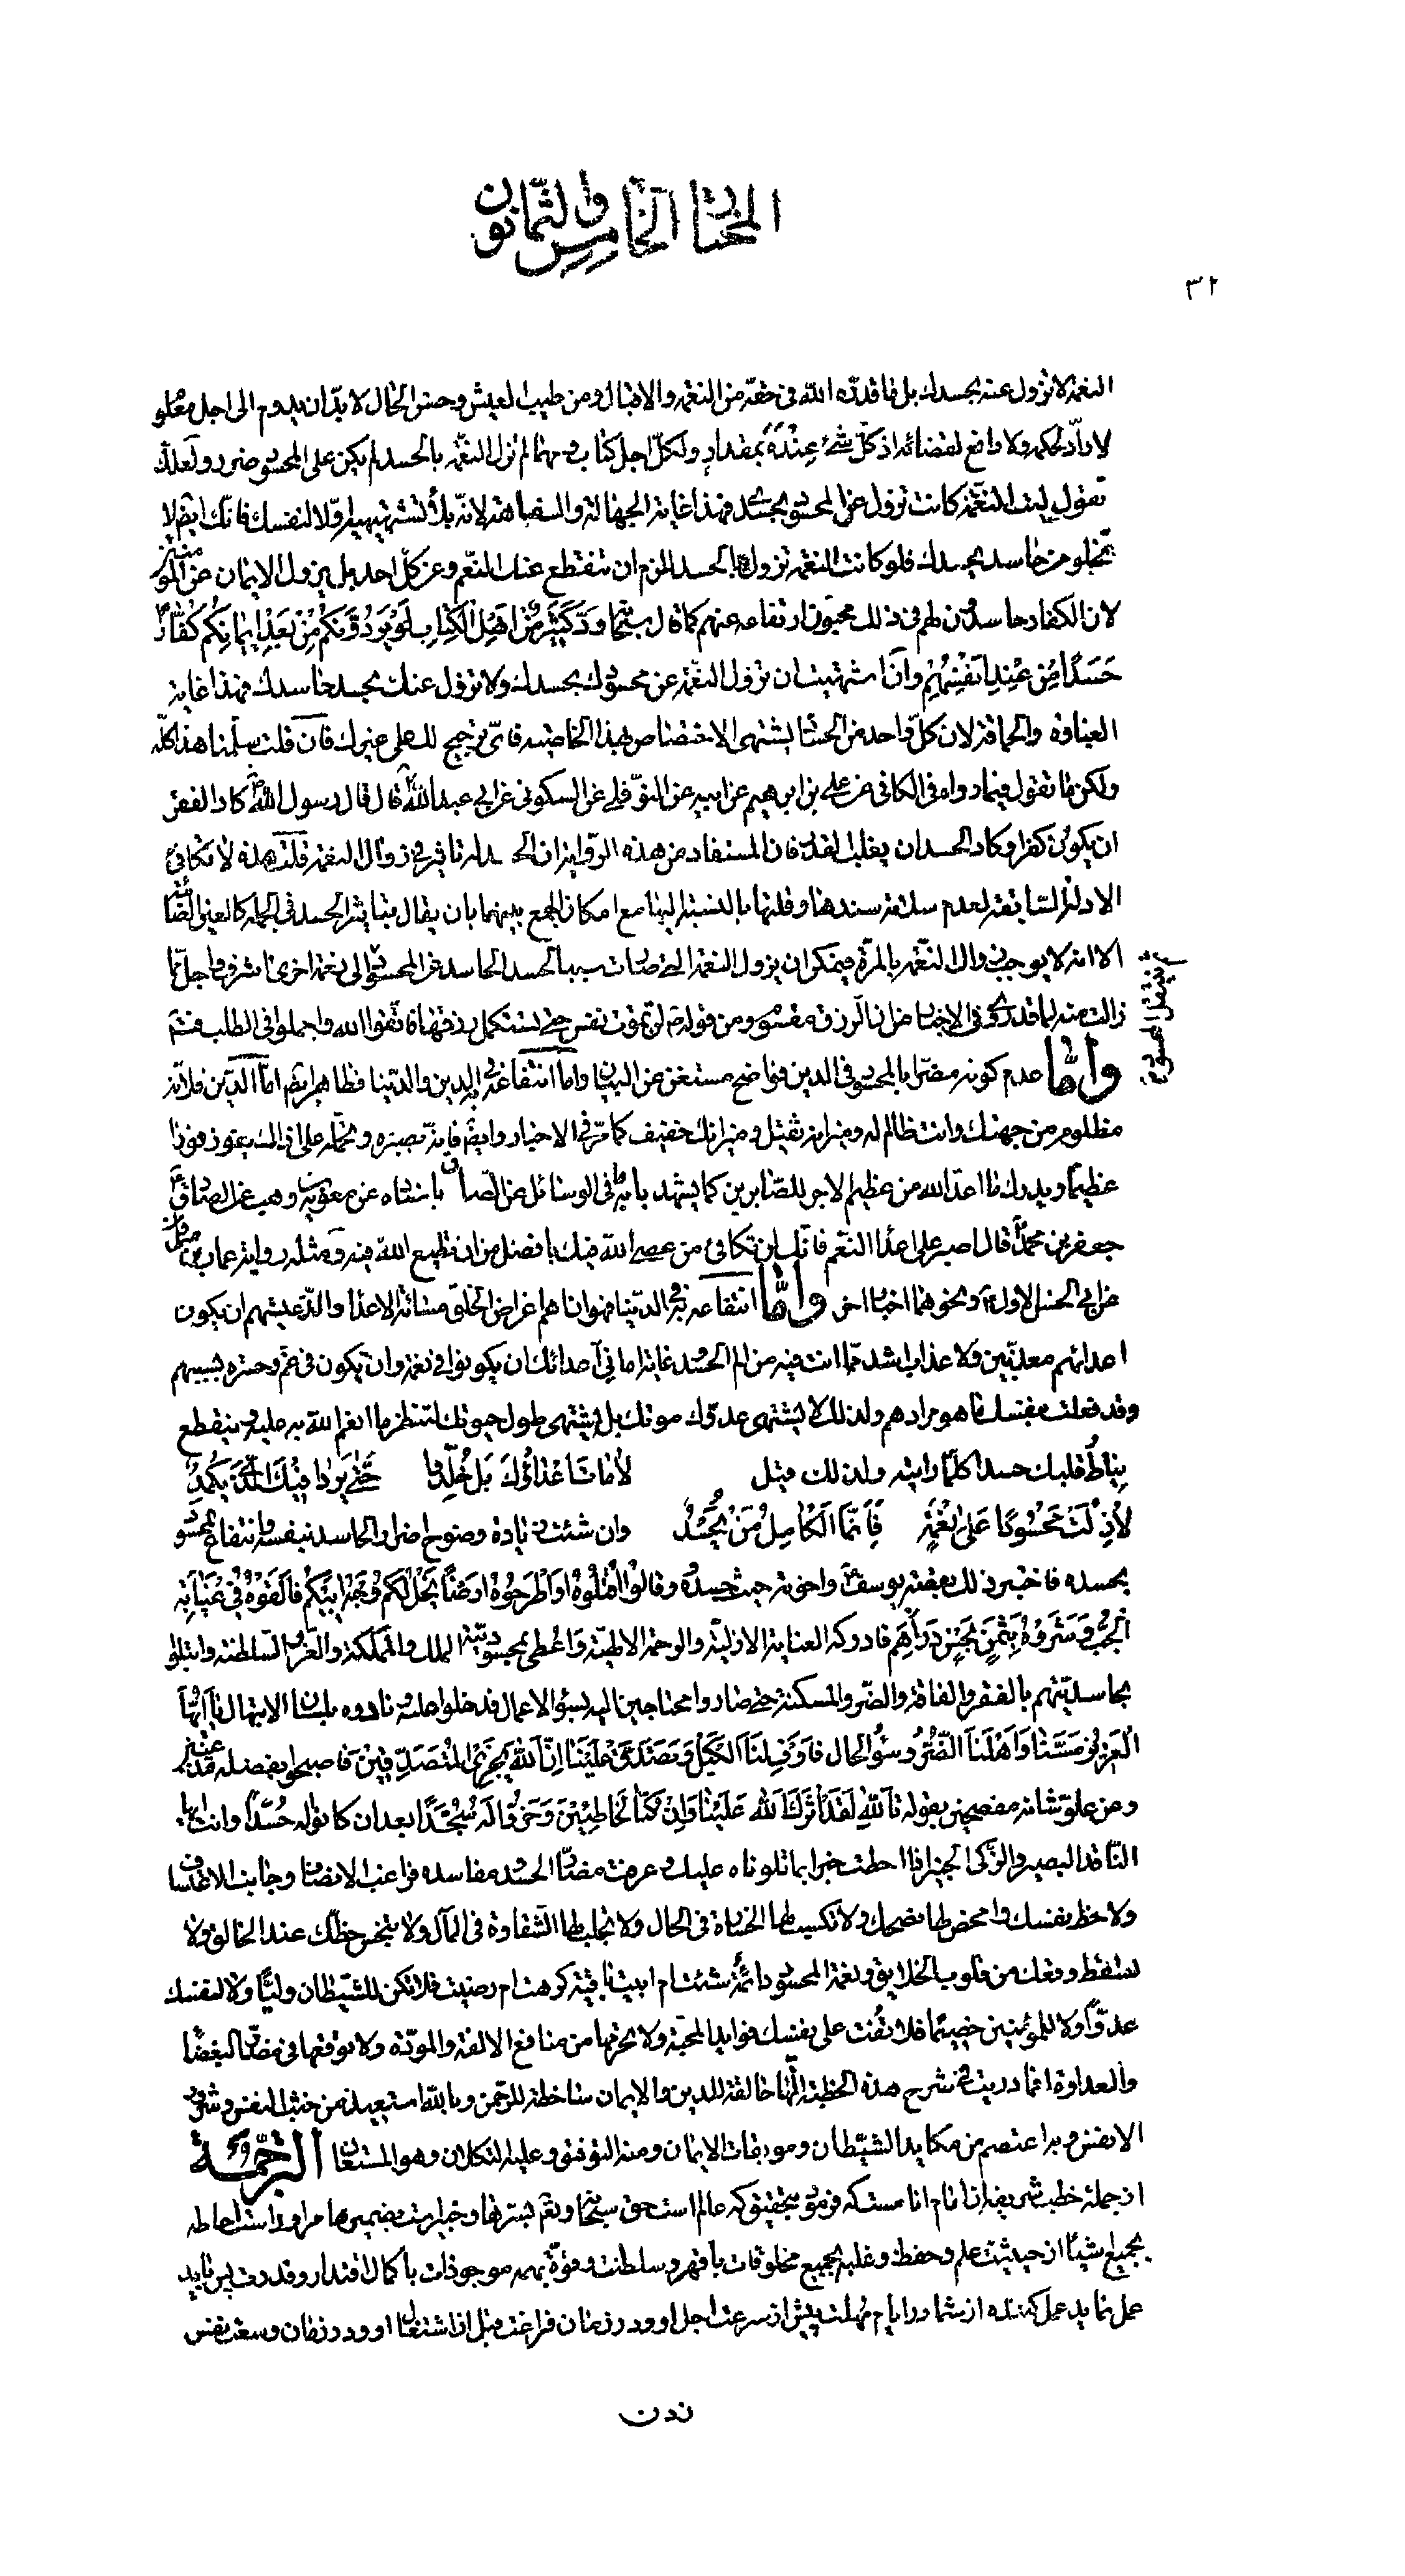 المختار الخامس والثمانون
٣٢
النعمة لا تزول عنه بحسدك بل ما قدّره اللّه في حقّه من النعمة والاقبال ومن طيب العيش وحسن الحال لا بدّ ان يدوم الى اجل معلوم
لا رادّ لحكمه ولا دافع لقضائه اذ كلّ شيء عِنْدَهُ بمقدارٍ ولكلّ اجل كتاب ومهما لم تزل النعمة بالحسد لم يكن على المحسود ضرر ولعلّك
تقول ليت النعمة كانت تزول عن المحسود بحسدي فهذا غاية الجهالة والسفاهة لانّه بلاء تشتهيه اوّلا لنفسك فانّك ايضا لا
تخلو من حاسد يحسدك فلو كانت النعمة تزول بالحسد لزم ان تنقطع عنك النعم وعن كلّ احد بل يزول الايمان عن المؤمنين
لان الكفار حاسدون لهم في ذلك محبّون ارتفاعه عنهم كما قال سبحانه وَدَّ كَثِيرٌ مِّنْ اَهْلِ الْكِتابِ لَوْ يَرُدُّونَكُم مِّنْ بَعْدِ اِيمانِكُم كُفّاراً
حَسَدًا مِّنْ عِنْدِ اَنْفُسِهُمْ وان اشتهيت ان تزول النعمة عن محسودك بحسدك ولا تزول عنك بحسد حاسدك فهذا غاية
الغباوة والحماقة لان كلّ واحد من الحسّاد يشتهى الاختصاص بهذا الخاصية فاىّ ترجيح لك على غيرك فان قلت سلّمنا هذا كلّه
ولكن ما تقول فيما رواه في الكافي عن علي بن ابرهيم عن ابيه عن النوفلي عن السكوني عن ابي عبد اللّه قال قال رسول اللّه كاد الفقر
ان يكون كفرا وكاد الحسد ان يغلب القدر فان المستفاد من هذه الرواية ان الحسد له تاثير في زوال النعمة قلت هذه لا تكافئ
الادلة السابقة لعدم سلامة سندها وقلتها بالنسبة اليها مع امكان الجمع بينهما بان يقال بتاثير الحسد في الجملة كالعين الصائبة
الا انه لا يوجب زوال النعمة بالمرة فيمكن ان يزول النعمة التي صارت سببا لحسد الحاسد عن المحسود الى نعمة اخرى اشرف واجل مما
زالت منه لما قد ورد في الاخبار من ان الرزق مقسوم ومن قوله لن تموت نفس حتى تستكمل رزقها فاتقوا اللّه واجملوا في الطلب فتنتقل المحسود من
وامّا عدم كونه مضرّا بالمحسود في الدين فواضح مستغن عن البيان واما انتفاعه به في الدين والدنيا فظاهر ايضا امّا الدين فلانه
مظلوم من جهتك وانت ظالم له وميزانه ثقيل وميزانك خفيف كما مرّ في الاخبار وايضا فانه بصبره وتحمّله على اذاك يفوز فوزا
عظيما ويدرك ما اعدّ اللّه من عظيم الاجر للصّابرين كما يشهد به ما في الوسائل عن الصدوق باسناده عن معوية بن وهب عن الصادق
جعفر بن محمد قال اصبر على اعداء النعم فانك لن تكافئ من عصى اللّه فيك بافضل من ان تطيع اللّه فيه ومثله رواية عمار بن مروان
عن ابي الحسن الاول ونحوهما اخبار اخر وامّا انتفاعه به في الدنيا فهو ان اهم اغراض الخلق مسائة الاعداء والذّ عيشهم ان يكون
اعدائهم معذّبين ولا عذاب اشد مما انت فيه من الم الحسد وغاية اماني اعدائك ان يكونوا في نعمة وان تكون في غم وحسرة بسببهم
وقد فعلت بنفسك ما هو مرادهم ولذلك لا يشتهى عدوّك موتك بل يشتهى طول حيوتك لتنظر ما انعم اللّه به عليه وينقطع
نياط قلبك حسدا كلّما رايته ولذلك قيل لا ماتَ اَعْداؤُكَ بَل خُلّدوا حَتّى يَرَوْا فِيْكَ الَّذي يُكْمِدُ
لا زِلْتَ مَحْسُودًا عَلى نِعْمَةٍ فَاِنَّما الْكامِلُ مَنْ يُحْسَدُ وان شئت زيادة وضوح اضرار الحاسد بنفسه وانتفاع المحسود
بحسده فاختبر ذلك بقضيّة يوسف واخوته حيث حسدوه وقالوا اقْتُلُوهُ اَوِ اطْرَحُوهُ اَرْضًا يَخْلُ لَكُم وَجْهُ اَبِيكُم فَاَلْقَوْهُ في غَيابَةِ
الْجُبِّ وَشَرَوْهُ بِثَمَنٍ بَخْسٍ دَراهِم فادركه العناية الازلية والرحمة الالهية وَاُعْطى بمحسوديّته الملك والمملكة والعزّ والسلطنة وابتلوا
بحاسديّتهم بالفقر والفاقة والضّر والمسكنة حتى صاروا محتاجين اليه بسوء الاعمال فدخلوا عليه ونادوه بلسان الابتهال يا اَيُّهَا
الْعَزيزُ مَسَّنا وَاَهْلَنَا الضُّرُّ وسوُء الحال فَاَوْفِ لَنَا الْكَيْلَ وَتَصَدَّقْ عَلَيْنا اِنَّ اللّه يَجْزِى الْمُتَصَدِّقِينَ فاصبحوا بفضله معترفين
وعن علوّ شانه مفصحين بقوله تَاللّهِ لَقَدْ آثَرَكَ اللّه عَلَيْنا وَاِنْ كُنّا لَخاطِئِينَ وَخَرُّوا لَه سُجَّدًا بعد ان كانوا له حُسّداً وانت ايها
النّاقد البصير والزّكى الخبير اذا احطت خبرا بما تلوناه عليك وعرفت مضارّ الحسد ومفاسده فراعب الانصاف وجانب الاعتساف
ولاحظ نفسك وامحض لها نصحك ولا تكسب لها الخسارة في الحال ولا تجلب لها الشقاوة في المآل ولا تبخس حظّك عند الخالق ولا
تسقط وقعك من قلوب الخلايق ونعمة المحسود دائمة شئت ام ابيت باقية كرهت ام رضيت فلا تكن للشيطان وليًّا ولا لنفسك
عدوّا ولا للمؤمنين خصيما فلا تُفت على نفسك فوايد المحبّة ولا تحرمها من منافع الالفة والمودّة ولا توقعها في مضارّ البغضاء
والعداوة اما دريت في شرح هذه الخطبة انّها حالقة للدين والايمان ساخطة للرّحمن وباللّه استعيذ من خبث النفس وشرور
الانفس وبه اعتصم من مكايد الشيطان وموبقات الايمان ومنه التوفيق وعليه التكلان وهو المستعان الترجمة
از جملة خطب شريفه ان امام انام است كه فرموده بتحقيق كه عالم است حق سبحانه وتعالى بسرّها وخبير است بضميرها مر اوراست احاطه
بجميع اشيا از حيثيت علم وحفظ وغلبه بجميع مخلوقات با قهر وسلطنت وقوّة بهمه موجودات با كمال اقتدار وقدرت پس بايد
عمل نمايد عمل كننده از شما در ايام مُهلت پيش از سرعت اجل او ودر زمان فراغت قبل از اشتغال او ودر زمان وسعت نفس
زدن